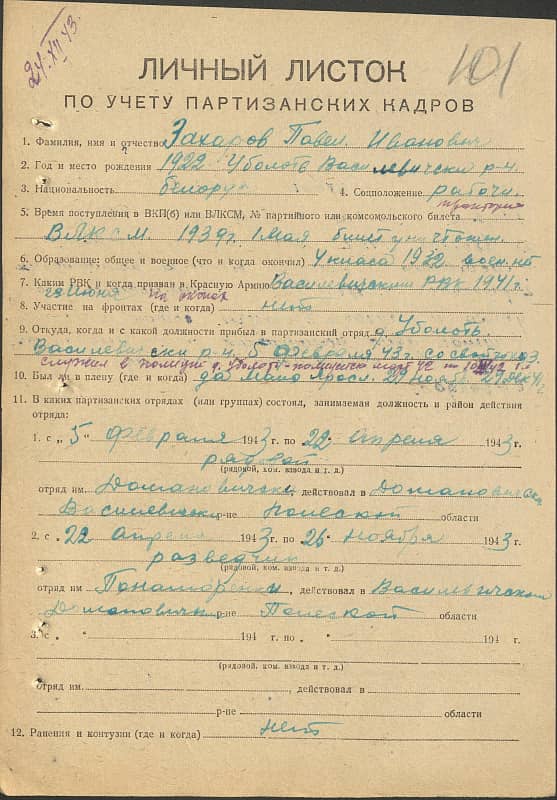 24.XII.43.
101
ЛИЧНЫЙ ЛИСТОК
ПО УЧЕТУ ПАРТИЗАНСКИХ КАДРОВ
1. Фамилия, имя и отчество Захаров Павел Иванович
2. Год и место рождения 1922 Уболоть Василевически р-н
3. Национальность белорус 4. Соцположение рабочи.
тракторист
5. Время поступления в ВКП(б) или ВЛКСМ, № партийного или комсомольского билета
ВЛКСМ 1939г. 1 мая билет уничтожен
6. Образование: общее и военное (что и когда окончил) 4 класа 1932 воен. нет
7. Каким РВК и когда призван в Красную Армию Василевичским РВК 1941 г.
28 июня на окопах
8. Участие на фронтах (где и когда) нет
9. Откуда, когда и с какой должности прибыл в партизанский отряд д. Уболоть
Василевически р-н. 5 февраля 43 г.
служил в полиции д. Уболоть
10. Был ли в плену (где и когда) да
11. В каких партизанских отрядах (или группах) состоял, занимаемая должность и район действия
отряда:
1. с „ 5 " февраля 1943 г. по 22 апреля 1943 г.
рядовой
(рядовой, ком. взвода и т. д.)
отряд им Домановически, действовал в Домановическ
Василевическ р-не Полеской области
2. с „ 22 апреля 1943 г. по 26 ноября 1943 г.
разведчик
(рядовой, ком. взвода и т. д.)
отряд им Понаморенки, действовал в Василевической
Домановичи р-не Полеской области
3. с „ " 194 г. по „ " 194 г.
(рядовой, ком. взвода и т. д.)
отряд им. , действовал в
р-не области
12. Ранения и контузии (где и когда) нет